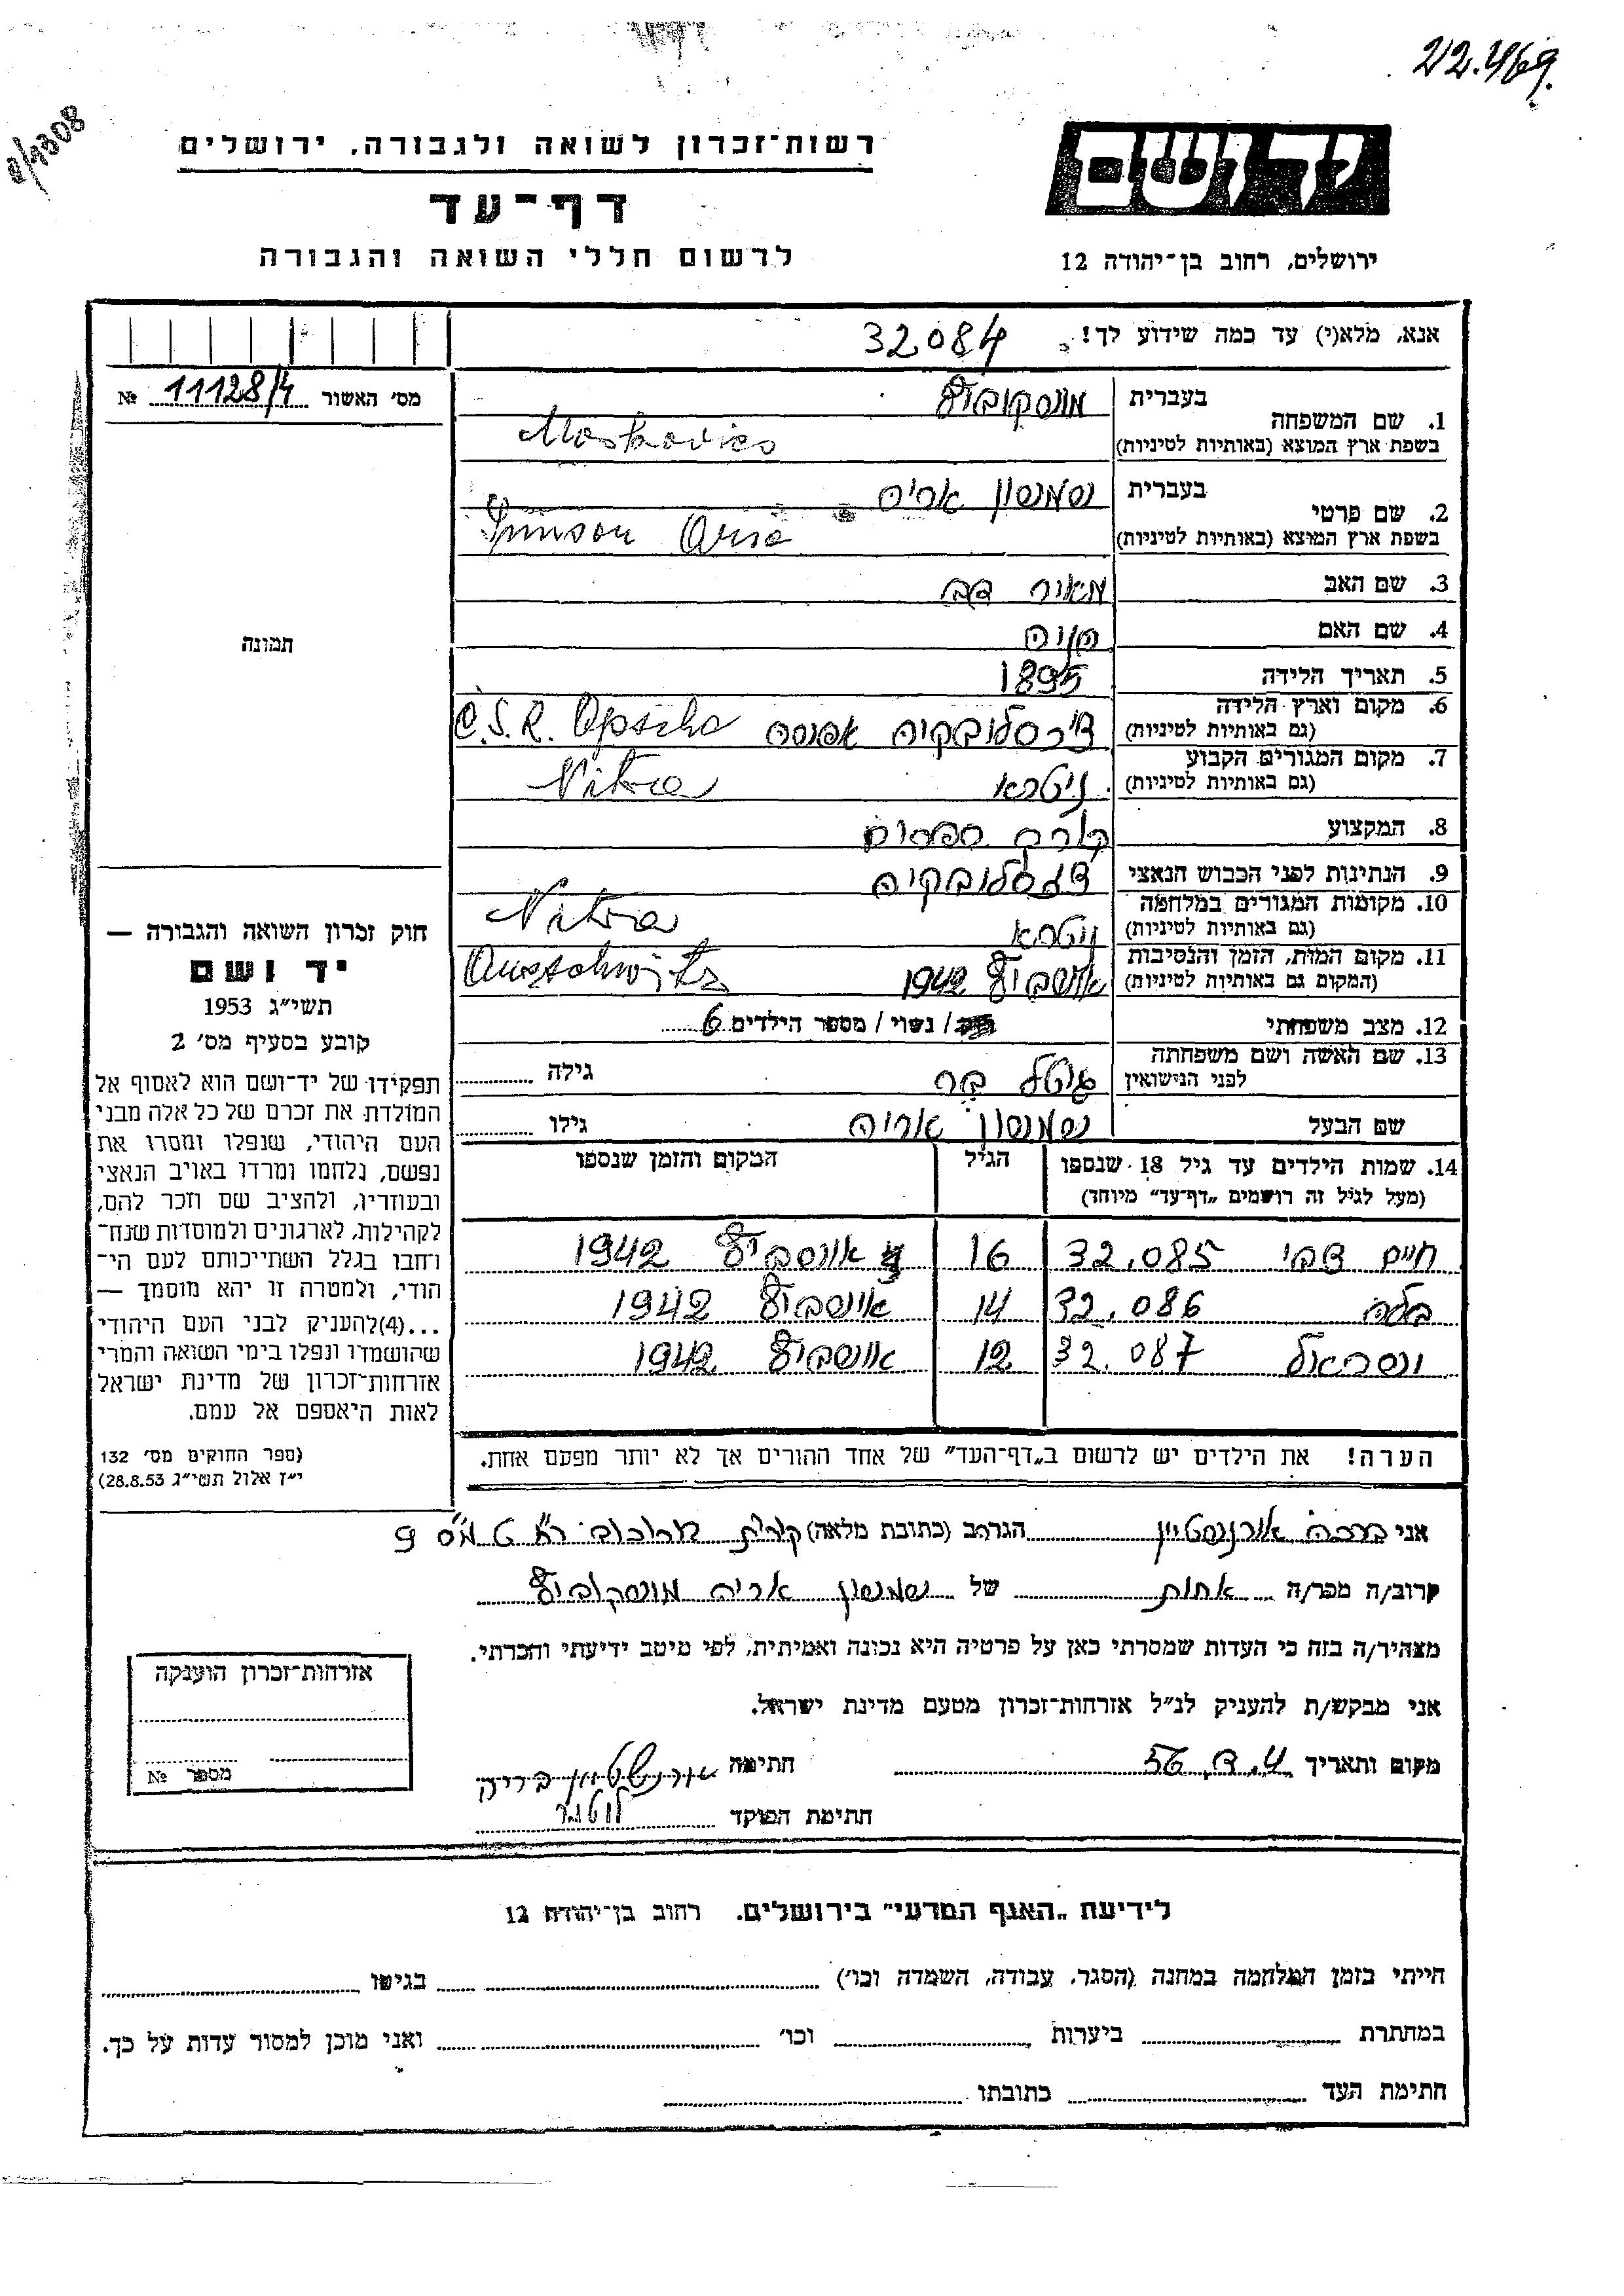 22.469.
8/1308
יד ושם
רשות־זכרון לשואה ולגבורה, ירושלים
דף־עד
לרשום חללי השואה והגבורה
ירושלים, רחוב בן־יהודה 12
אנא, מלא(י) עד כמה שידוע לך! 32084
מס׳ האשור 11128/4 №
1. שם המשפחה
בעברית מוסקוביץ
בשפת ארץ המוצא (באותיות לטיניות) Moskovics
2. שם פרטי
בעברית שמשון אריה
בשפת ארץ המוצא (באותיות לטיניות) Simson Arie
3. שם האב מאיר דב
4. שם האם
5. תאריך הלידה 1895
6. מקום וארץ הלידה
(גם באותיות לטיניות) צ׳כסלובקיה אפשה Č.S.R. Apscha
7. מקום המגורים הקבוע
(גם באותיות לטיניות) ניטרא Nitra
8. המקצוע
9. הנתינות לפני הכבוש הנאצי צ׳כסלובקיה
10. מקומות המגורים במלחמה
(גם באותיות לטיניות) ניטרא Nitra
11. מקום המות, הזמן והנסיבות
(המקום גם באותיות לטיניות) אושביץ 1942 Auschwitz
12. מצב משפחתי / נשוי / מספר הילדים 6
13. שם האשה ושם משפחתה
לפני הנישואין גיטל בר גילה
שם הבעל שמשון אריה גילו
14. שמות הילדים עד גיל 18 שנספו
(מעל לגיל זה רושמים „דף־עד״ מיוחד)
הגיל
המקום והזמן שנספו
חיים צבי 32.085 16 אושביץ 1942
בלה 32.086 14 אושביץ 1942
ישראל 32.087 12 אושביץ 1942
הערה! את הילדים יש לרשום ב„דף־העד״ של אחד ההורים אך לא יותר מפעם אחת.
תמונה
חוק זכרון השואה והגבורה —
יד ושם
תשי״ג 1953
קובע בסעיף מס׳ 2
תפקידו של יד־ושם הוא לאסוף אל
המולדת את זכרם של כל אלה מבני
העם היהודי, שנפלו ומסרו את
נפשם, נלחמו ומרדו באויב הנאצי
ובעוזריו, ולהציב שם וזכר להם,
לקהילות, לארגונים ולמוסדות שנח־
רחבו בגלל השתייכותם לעם הי־
הודי, ולמטרה זו יהא מוסמך —
...(4)להעניק לבני העם היהודי
שהושמדו ונפלו בימי השואה והמרי
אזרחות־זכרון של מדינת ישראל
לאות היאספם אל עמם.
(ספר החוקים מס׳ 132
י״ז אלול תשי״ג 28.8.53)
אני ברכה אורנשטיין הגר/ה ב (כתובת מלאה) קרית 9
קרוב/ה מכר/ה אחות של שמשון אריה מוסקוביץ
מצהיר/ה בזה כי העדות שמסרתי כאן על פרטיה היא נכונה ואמיתית, לפי מיטב ידיעתי והכרתי.
אני מבקש/ת להעניק לנ״ל אזרחות־זכרון מטעם מדינת ישראל.
מקום ותאריך 56 חתימה אורנשטיין
חתימת הפוקד
אזרחות־זכרון הוענקה
מספר №
לידיעת „האגף המדעי״ בירושלים, רחוב בן־יהודה 12
הייתי בזמן המלחמה במחנה (הסגר, עבודה, השמדה וכו׳) בגיטו
במחתרת ביערות וכו׳ ואני מוכן למסור עדות על כך.
חתימת העד כתובתו